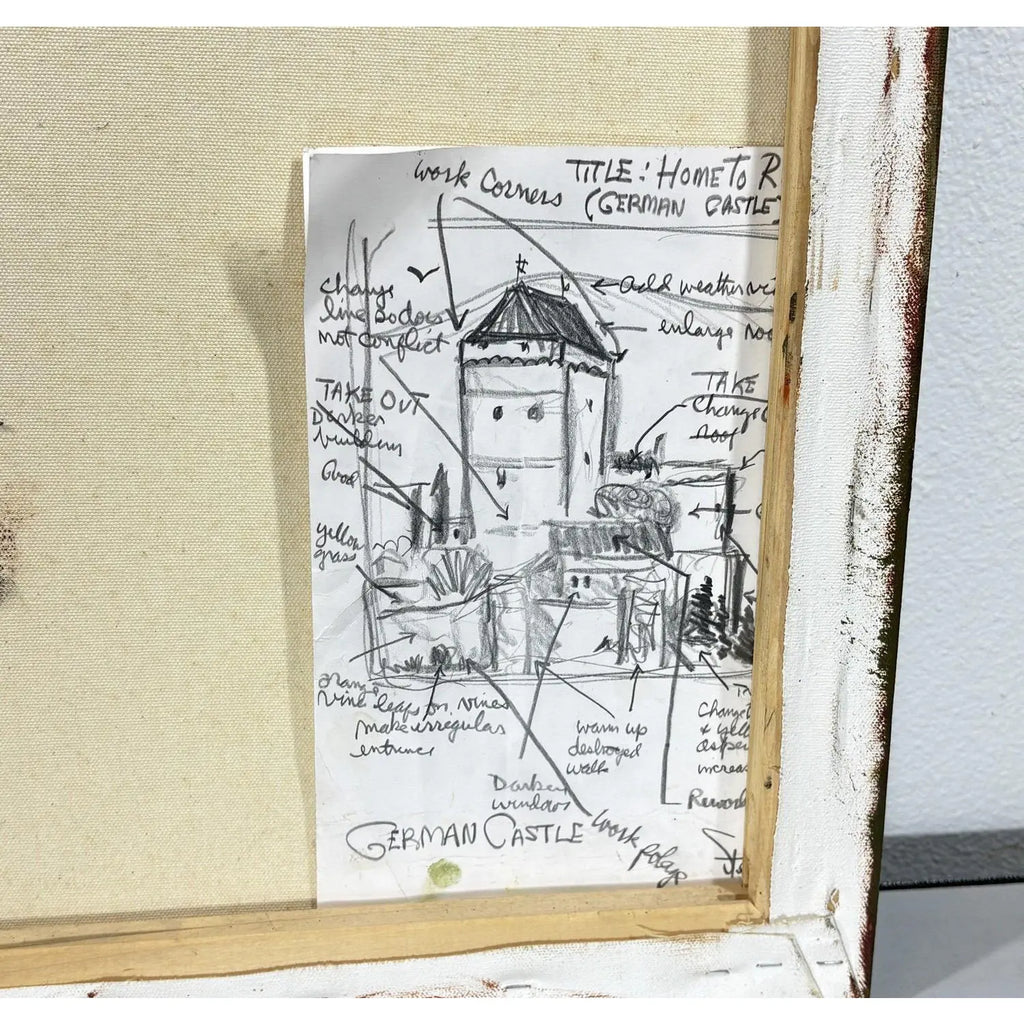 Work Corners
TITLE: HOME TO R
(GERMAN CASTLE)
Change
line so does
not conflict
add weather vi
enlarge roo
TAKE OUT
Darker
building
TAKE
Change
roof
Good
yellow
grass
orange
vine leaps on vines
make irregular
entrance
warm up
destroyed
walls
Change
increas
Darken
windows
Rework
GERMAN CASTLE
Work